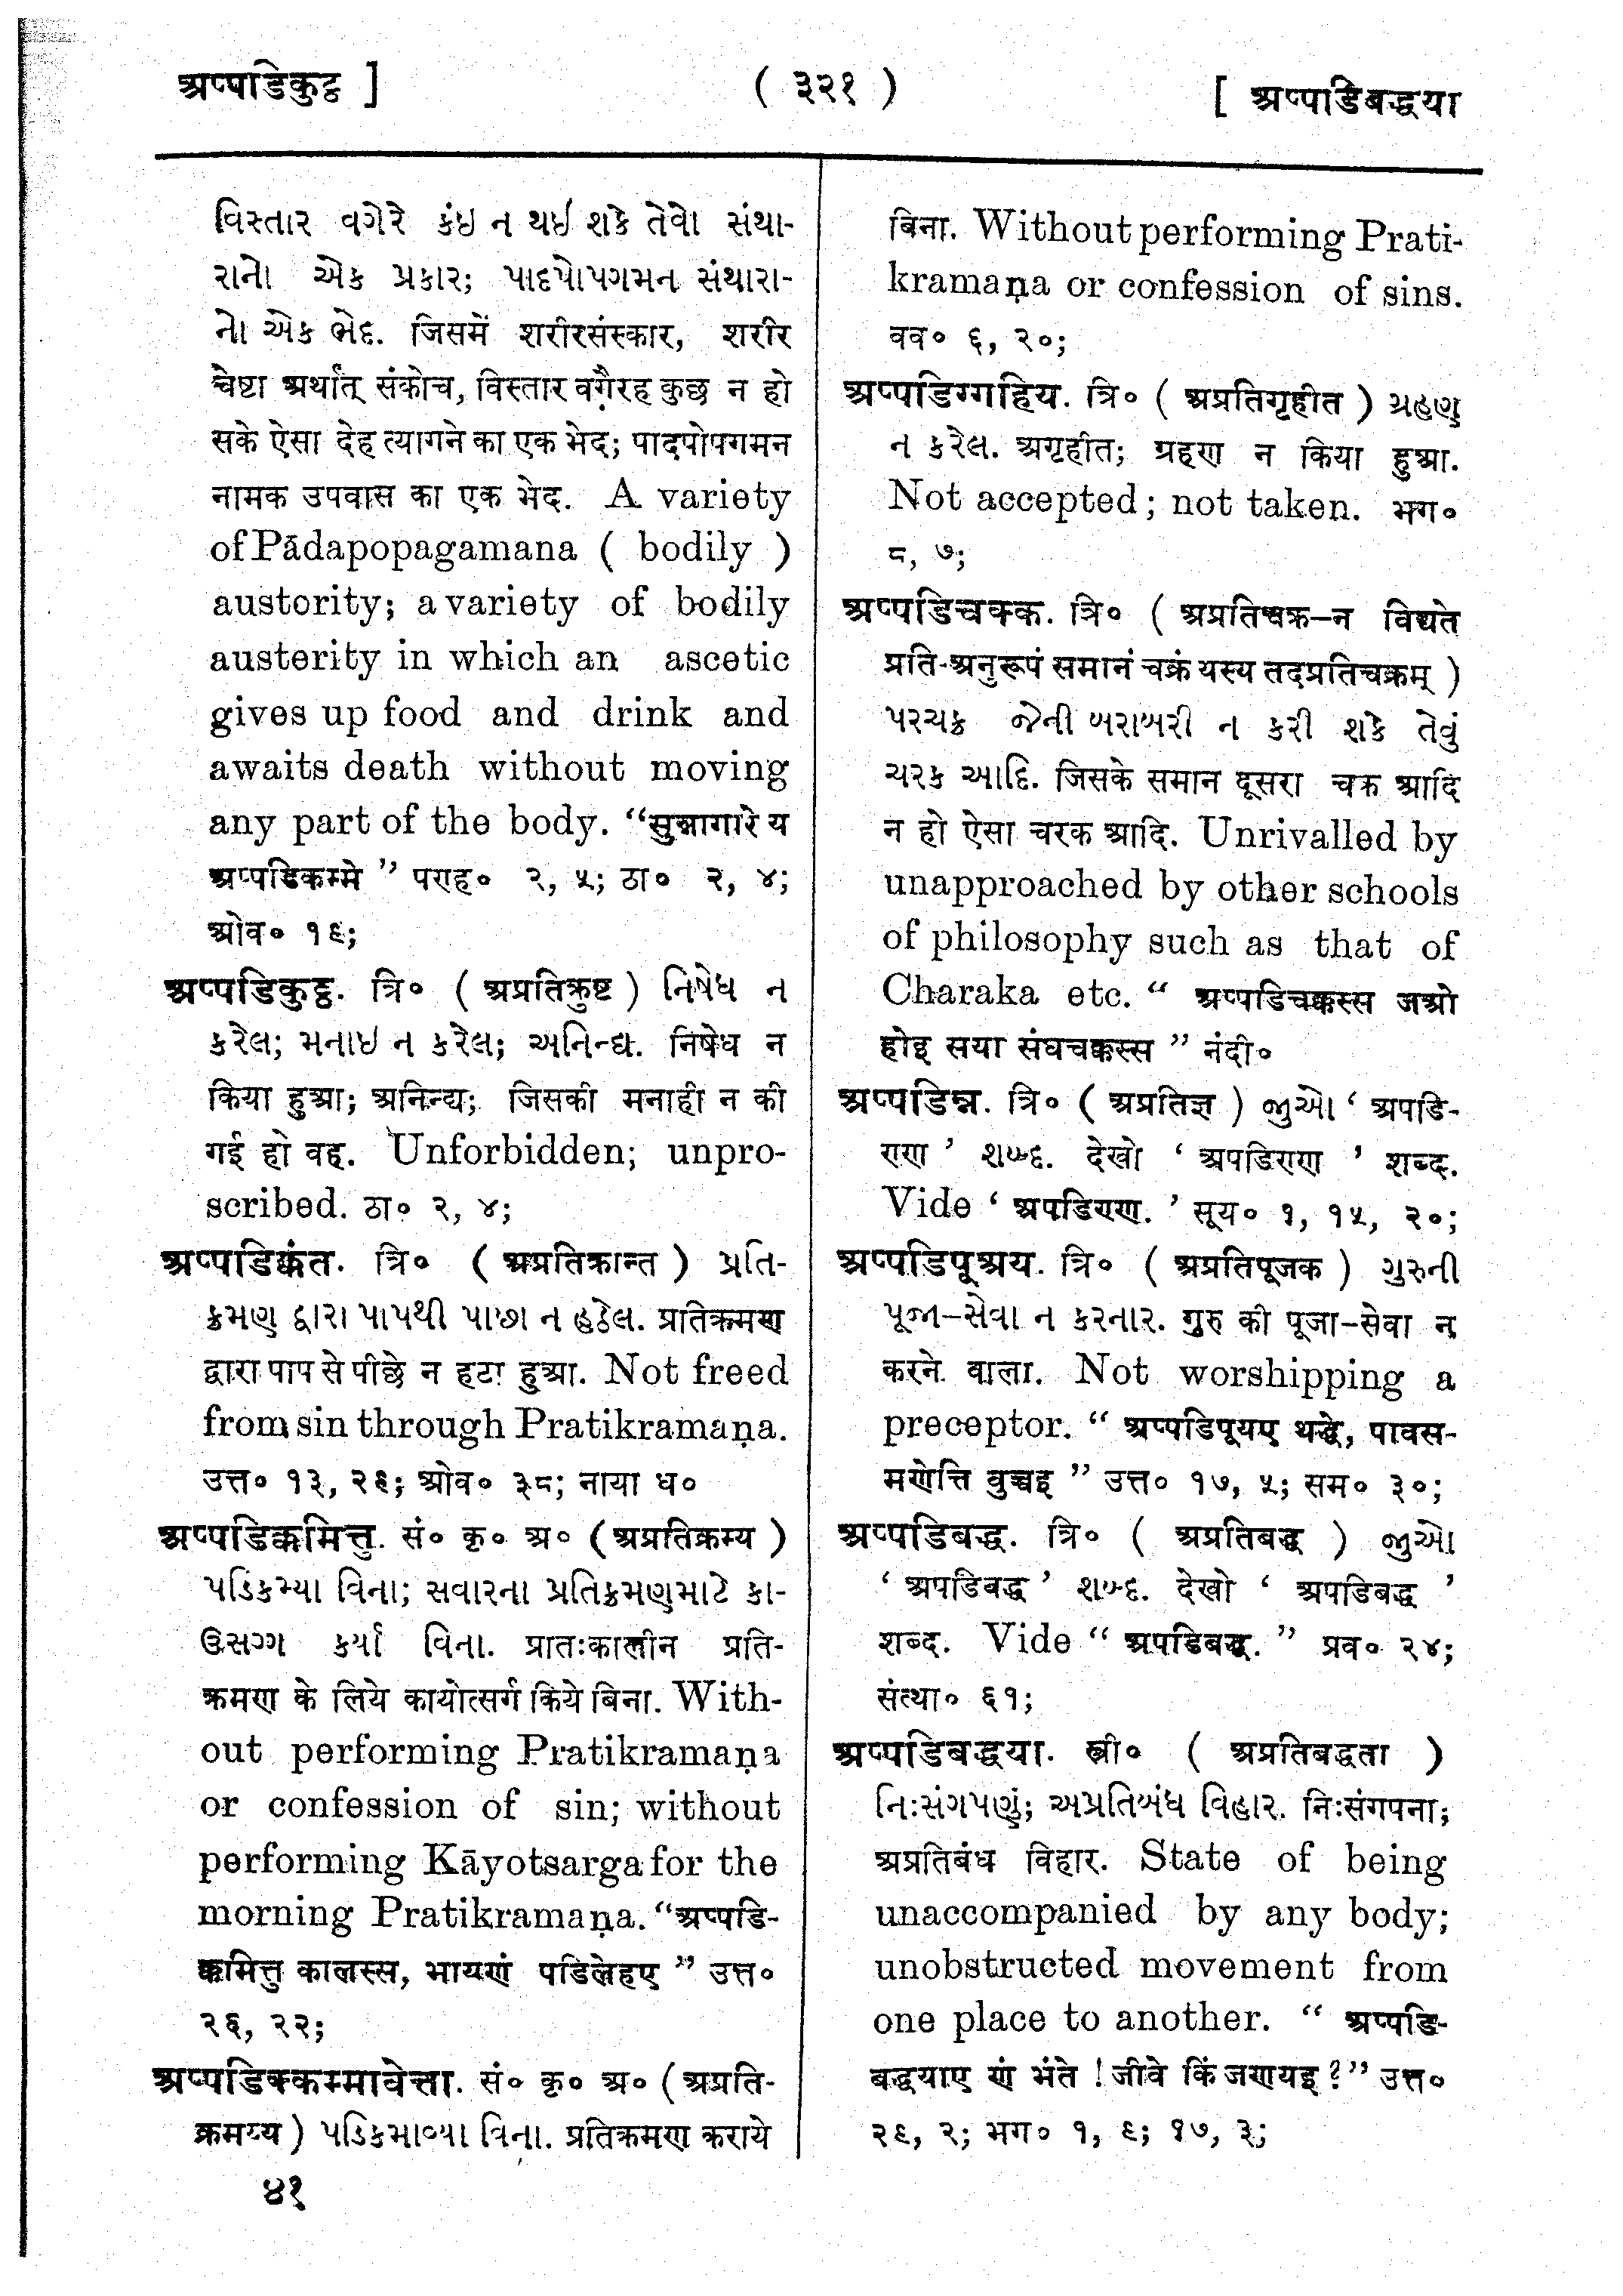 अप्पडिकुट्ठ ]
( ३२१ )
[ अप्पडिबद्धया
વિસ્તાર વગેરે કંઇ ન થઈ શકે તેવો સંથા-
રાનો એક પ્રકાર; પાદપોપગમન સંથારા-
નો એક ભેદ. जिसमें शरीरसंस्कार, शरीर
चेष्टा अर्थात् संकोच, विस्तार वगैरह कुछ न हो
सके ऐसा देह त्यागने का एक भेद; पादपोपगमन
नामक उपवास का एक भेद. A variety
of Pādapopagamana ( bodily )
austority; a variety of bodily
austerity in which an ascetic
gives up food and drink and
awaits death without moving
any part of the body. “सुन्नागारे य
अप्पडिकम्मे ” पराह० २, ५; ठा० २, ४;
ओव० १९;
अप्पडिकुट्ठ. त्रि० ( अप्रतिक्रुष्ट ) નિષેધ ન
કરેલ; મનાઇ ન કરેલ; અનિન્દ્ય. निषेध न
किया हुआ; अनिन्द्य; जिसकी मनाही न की
गई हो वह. Unforbidden; unpro-
scribed. ठा० २, ४;
अप्पडिक्कंत. त्रि० ( अप्रतिक्रान्त ) પ્રતિ-
ક્રમણ દ્વારા પાપથી પાછા ન હઠેલ. प्रतिक्रमण
द्वारा पाप से पीछे न हटा हुआ. Not freed
from sin through Pratikramaṇa.
उत्त० १३, २९; ओव० ३८; नाया ध०
अप्पडिक्कमित्तु. सं० कृ० अ० ( अप्रतिक्रम्य )
પડિકમ્યા વિના; સવારના પ્રતિક્રમણમાટે કા-
ઉસગ્ગ કર્યા વિના. प्रातःकालीन प्रति-
क्रमण के लिये कायोत्सर्ग किये बिना. With-
out performing Pratikramaṇa
or confession of sin; without
performing Kāyotsarga for the
morning Pratikramaṇa. “अप्पडि-
क्कमित्तु कालस्स, भायणं पडिलेहए ” उत्त०
२६, २२;
अप्पडिक्कम्मावेत्ता. सं० कृ० अ० ( अप्रति-
क्रमय्य ) પડિકમાવ્યા વિના. प्रतिक्रमण कराये
४१
बिना. Without performing Prati-
kramaṇa or confession of sins.
वव० ६, २०;
अप्पडिग्गहिय. त्रि० ( अप्रतिगृहीत ) ગ્રહણ
ન કરેલ. अगृहीत; ग्रहण न किया हुआ.
Not accepted; not taken. भग०
८, ७;
अप्पडिचक्क. त्रि० ( अप्रतिचक्र–न विद्यते
प्रति-अनुरूपं समानं चक्रं यस्य तदप्रतिचक्रम् )
પરચક્ર જેની બરાબરી ન કરી શકે તેવું
ચરક આદિ. जिसके समान दूसरा चक्र आदि
न हो ऐसा चरक आदि. Unrivalled by
unapproached by other schools
of philosophy such as that of
Charaka etc. “ अप्पडिचक्कस्स जओ
होइ सया संघचक्कस्स ” नंदी०
अप्पडिन्न. त्रि० ( अप्रतिज्ञ ) જુઓ ‘ अपडि-
ण्ण ’ શબ્દ. देखो ‘ अपडिण्ण ’ शब्द.
Vide ‘ अपडिण्ण. ’ सूय० १, १५, २०;
अप्पडिपूअय. त्रि० ( अप्रतिपूजक ) ગુરુની
પૂજા–સેવા ન કરનાર. गुरु की पूजा–सेवा न
करने वाला. Not worshipping a
preceptor. “ अप्पडिपूयए थद्धे, पावस-
मणेत्ति वुच्चइ ” उत्त० १७, ५; सम० ३०;
अप्पडिबद्ध. त्रि० ( अप्रतिबद्ध ) જુઓ
‘ अपडिबद्ध ’ શબ્દ. देखो ‘ अपडिबद्ध ’
शब्द. Vide “ अपडिबद्ध. ” प्रव० २४;
संत्था० ६१;
अप्पडिबद्धया. स्त्री० ( अप्रतिबद्धता )
નિઃસંગપણું; અપ્રતિબંધ વિહાર. निःसंगपना;
अप्रतिबंध विहार. State of being
unaccompanied by any body;
unobstructed movement from
one place to another. “ अप्पडि-
बद्धयाए णं भंते ! जीवे किं जणयइ ?” उत्त०
२९, २; भग० १, ९; १७, ३;